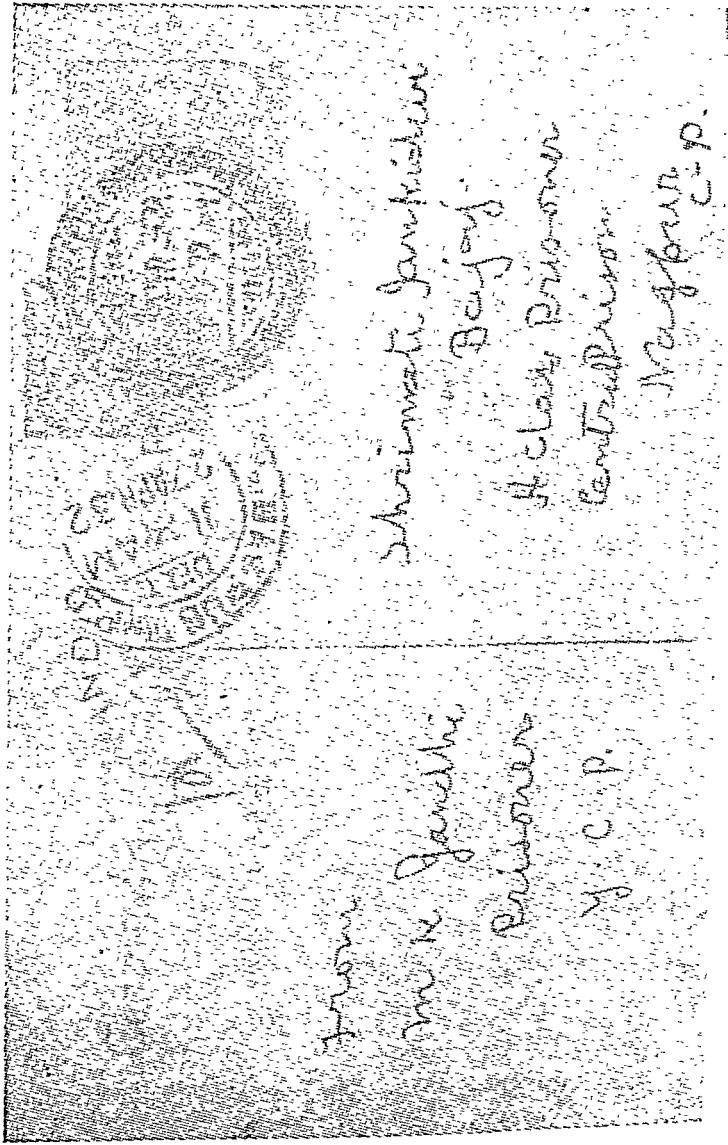 from
M K Gandhi
Prisoner
Y. C. P.
Shrimati Jankidevi
Bajaj
A class Prisoner
Central Prison
Nagpur
C. P.